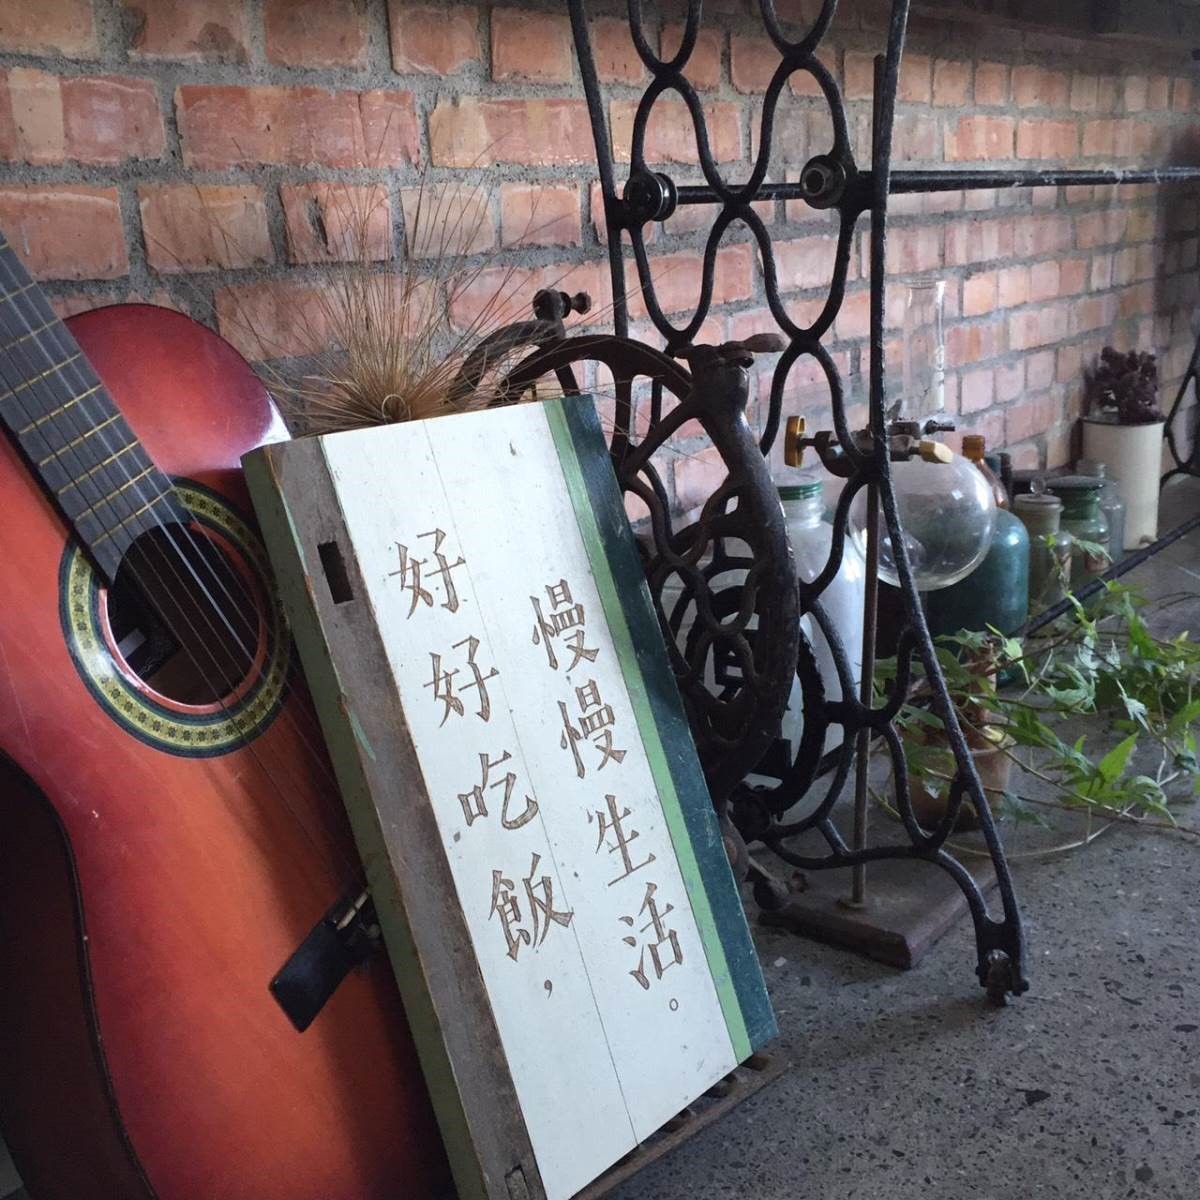 好好吃飯，
慢慢生活。